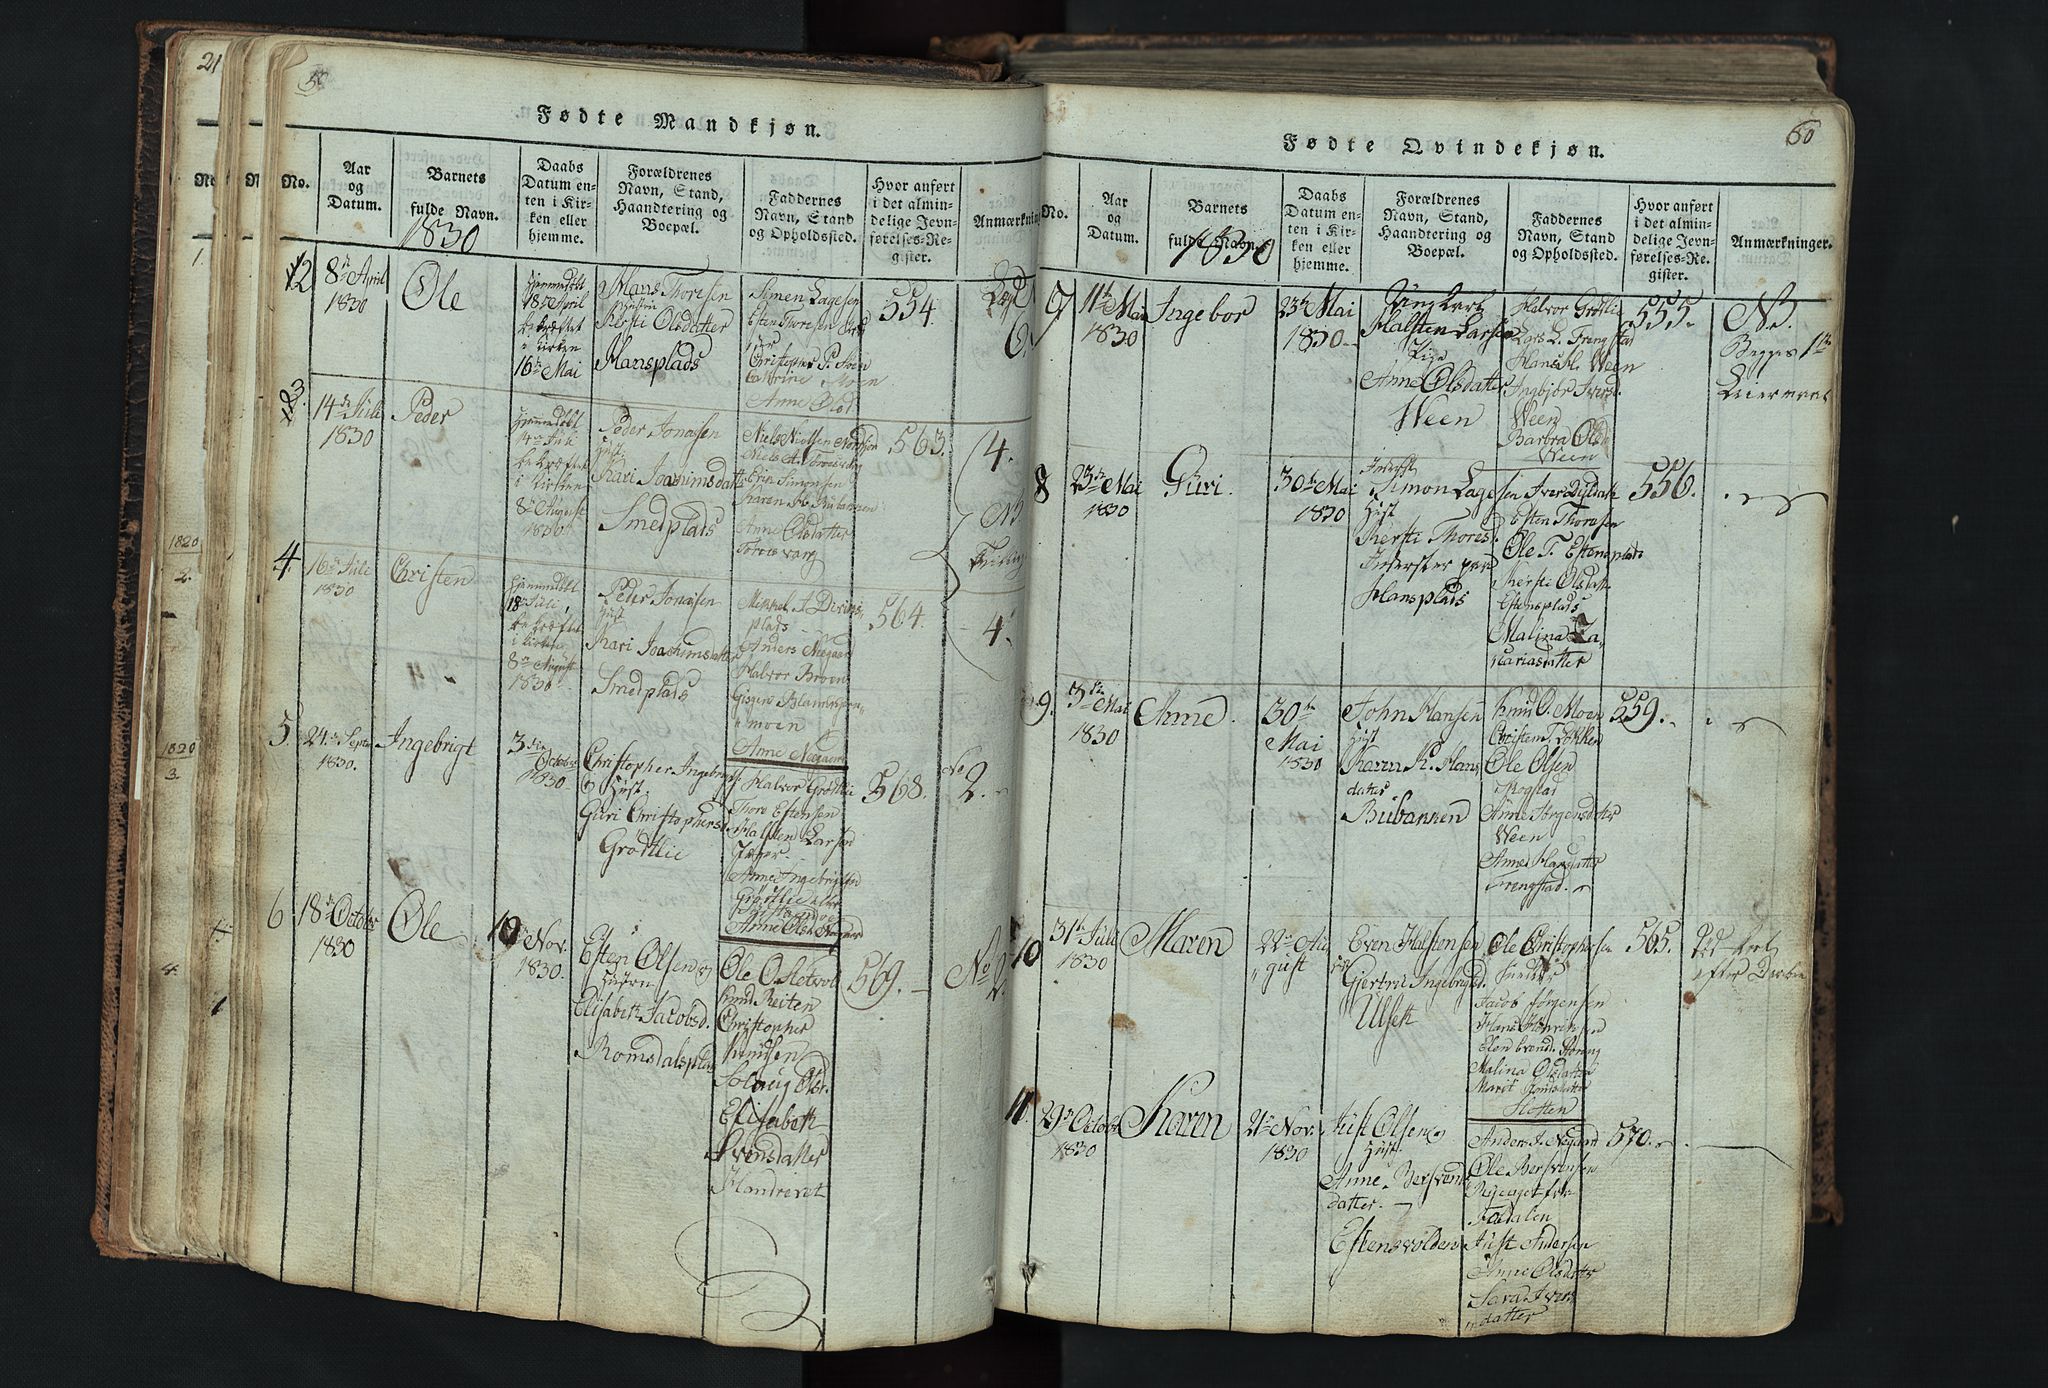 21
Fødte Mandkjøn.
No.
Aar
og
Datum.
Barnets
fulde Navn.
Daabs
Datum en-
ten i Kir-
ken eller
hjemme.
Forældrenes
Navn, Stand,
Haandtering og
Boepæl.
Faddernes
Navn, Stand
og Opholdssted.
Hvor anført
i det almin-
delige Jevn-
førelses-Re-
gister.
Anmærkning
1830
2
8de April
1830
Ole
hjemmedøbt
18de April
bekræftet
i Kirken
16de Mai
Hans Thoresen
Kersti Olsdatter
Hansplads
Simen Lagesen
Esten Thoresen
Christopher P. Moen
Cathrine Moen
Anne Olsd.
554.
6.
3.
14de Juli
1830
Peder
hjemmedøbt
14de Juli
bekræftet
i Kirken
8de August
1830
Peder Jonasen
Hust.
Kari Joachimsdatter
Smedplads
Niels Nielsen
Erik Simonsen
Anne Olsdatter
563.
4.
NB
4.
16de Juli
1830
Christen
hjemmedøbt
18de Juli,
bekræftet
i Kirken
8de August
1830
Peder Jonasen
Hust
Kari Joachimsdatter
Smedplads
plads
Anders Neegaard
Halvor Broen
moen
Anne Neegaard
564.
4.
5.
24de Septbr
1830.
Ingebrigt
3die
October
1830
Christopher Ingebrigts.
Hust.
Guri Christophersd.
Grødtlie
Halvor Grødtlie
Thore Estensen
Halsten Larsen
Anne Ingebrigtsd.
Grødtlie
568.
No
2.
6
18de Octobr
1830
Ole
10
Nov.
1830.
Esten Olsen og
Hustru
Elisabeth Jacobsd.
Romsdalsplads
Ole O. Sletvol
Knud Reiten
Christopher
Knudsen
Solveig Olsd.
Elisabeth
Svensdatter
569.
No
2.
60
Fødte Qvindekjøn.
No.
Aar
og
Datum.
Barnets
fulde Navn.
Daabs
Datum en-
ten i Kir-
ken eller
hjemme.
Forældrenes
Navn, Stand,
Haandtering og
Boepæl.
Faddernes
Navn, Stand
og Opholdssted.
Hvor anført
i det almin-
delige Jevn-
førelses-Re-
gister.
Anmærkninger.
1830
7
11te Mai
1830
Ingebor
23de Mai
1830
Ungkarl
Halsten Larsen
Pige
Anne Olsdatter
Ween
Halvor Grødtlie
Lars L. Frengstad
Hans H. Ween
Ingbjør Iversd.
Ween
Barbra Olsd.
Ween
555.
NB.
Begges 1te
Leiermaal
8
23de Mai
1830
Guri.
30te Mai
1830
Inderst
Simon Lagesen
Hust
Kersti Thoresd.
Inderster paa
Hansplads
Esten Thoresen
Ole T. Estensplads
Kersti Olsdatt.
Estensplads
Malina Za-
kariasdatter
556.
9.
Mai
1830
Anne.
30te
Mai
1830
John Hansen
Hust
Karen K. Hans
datter
Bubakken
Knud O. Moen
Christen T. Løkken
Ole Olsen
Rogstad
Anne Jørgensdatter
Ween
Anne Hansdatter
Frengstad.
559.
10
31te Juli
1830
Maren
22de Au
gust
Even Halstensen
og
Gjertru Ingebrigtsd.
Ulset
Ole Christophersen
Jacob Jørgensen
Malina Olsdatter
Marit
Sloften
565.
efter
11.
29de Octobr
1830
Karen
21de Nov.
1830
Just Olsen og
Hust.
Anne Bersvend
datter.
Estensvolden
Anders J. Neegaard
Ole Bersvensen
Just Andersen
Anne Olsdatter
Sara Ivers
datter
570.